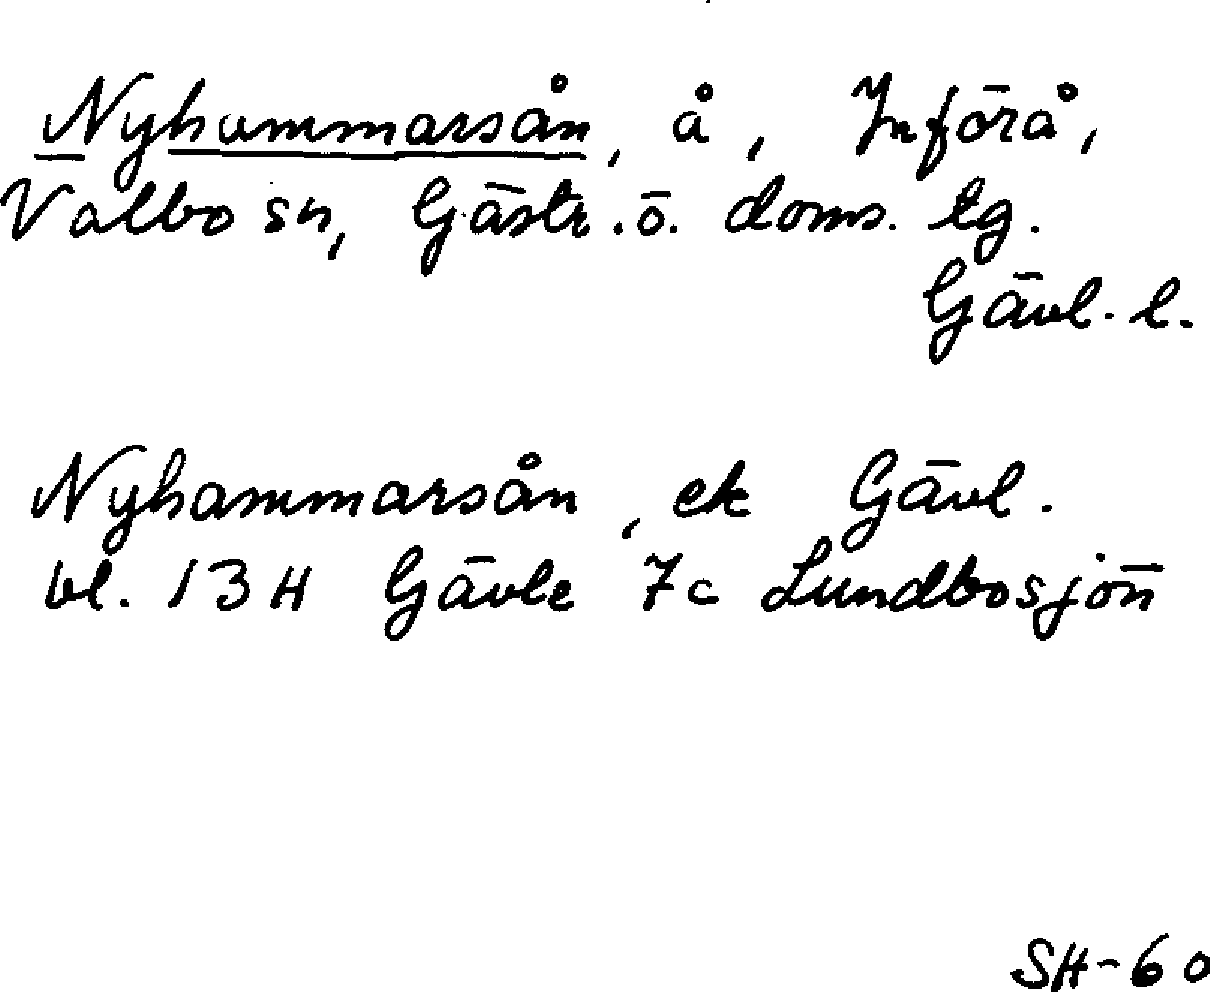 Nyhammarsån, å, Införå,
Valbo sn, Gästr.ö. doms. tg.
Gävl. l.
Nyhammarsån, ek Gävl.
bl. 13H Gävle 7c Lundbosjön
SH-60